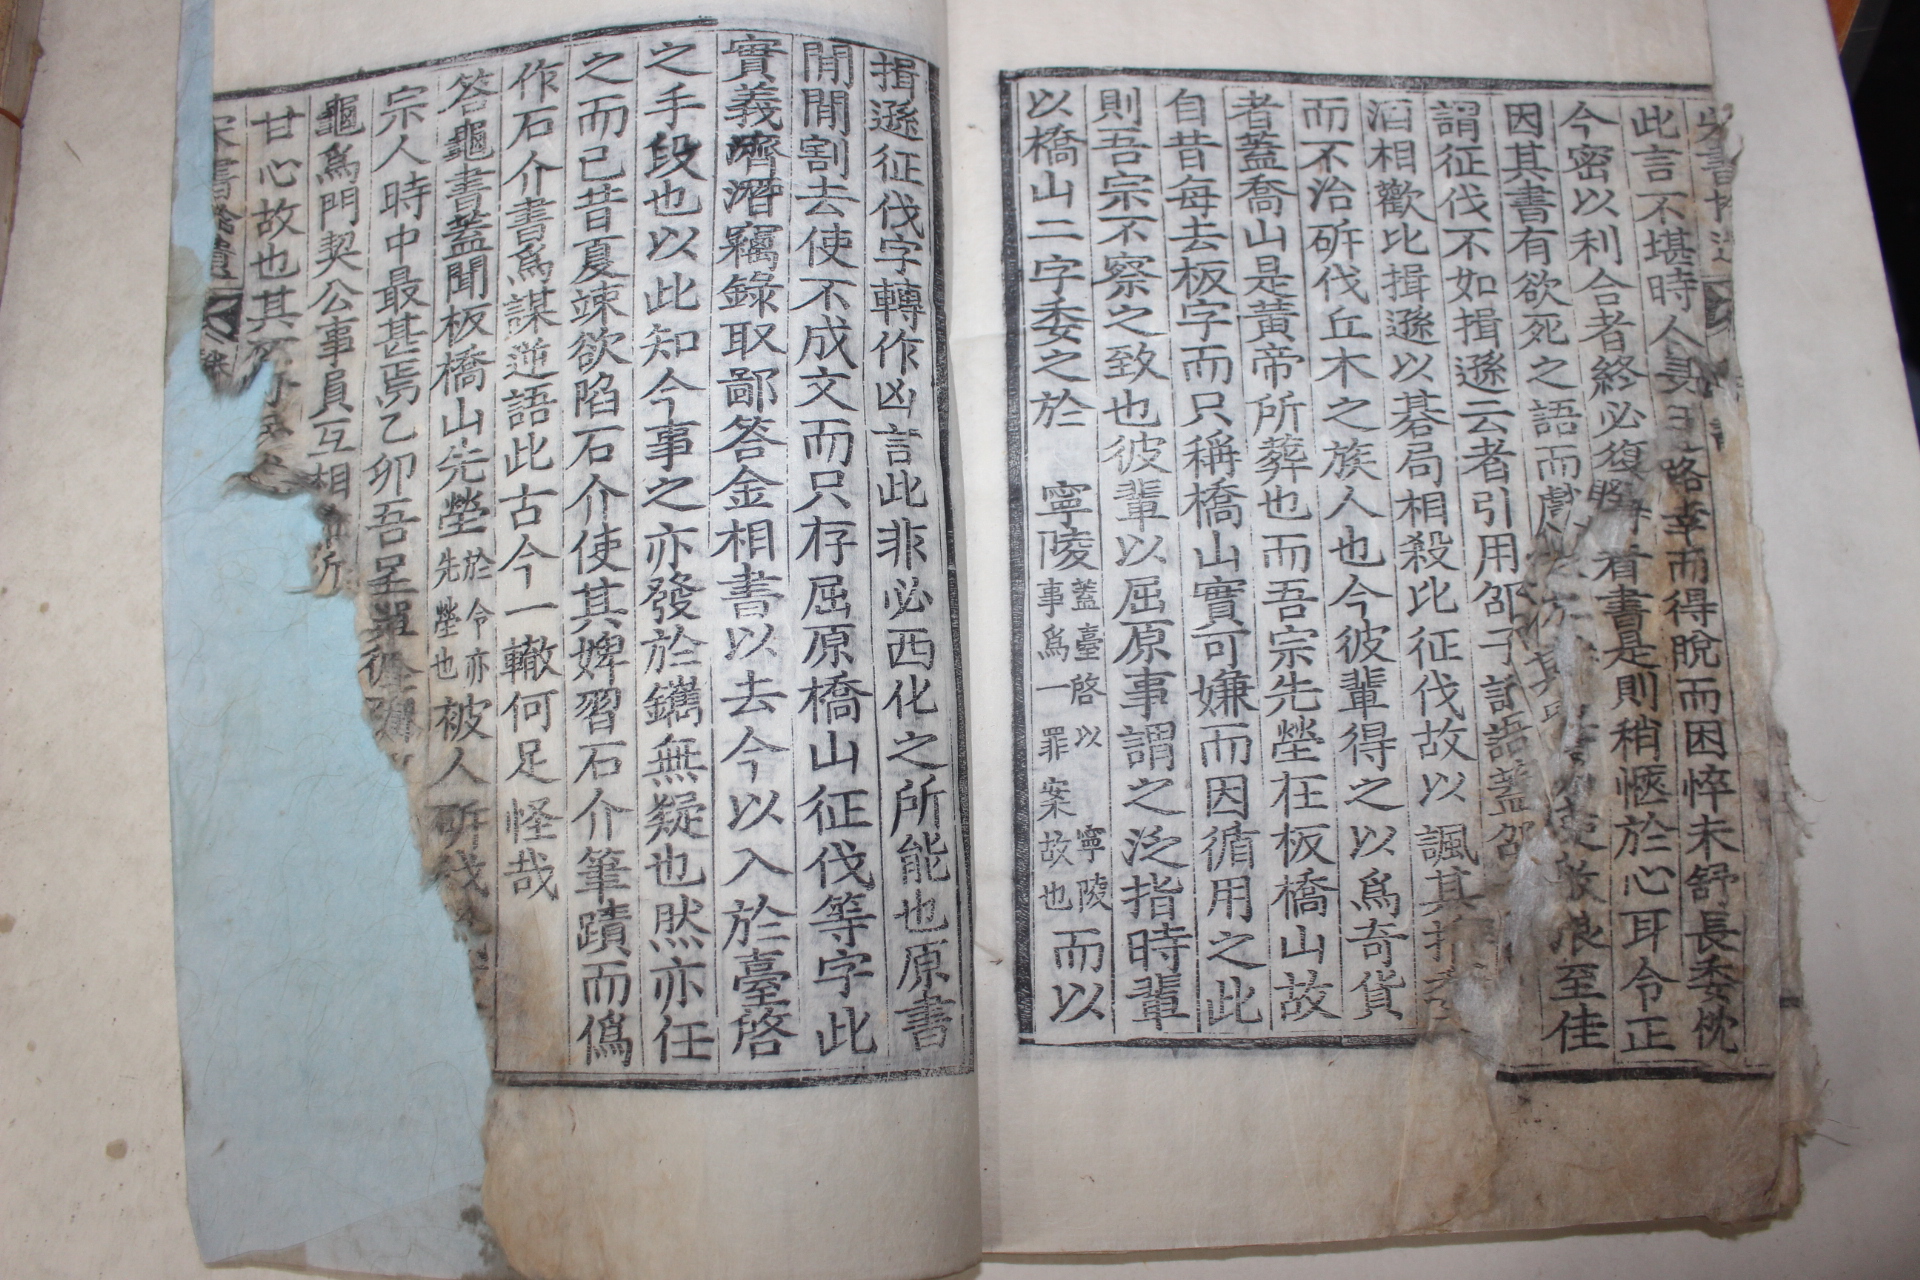 此言不堪時人妻路幸而得脫而困悴未舒長委忱
今密以利合者終必復看書是則稍愜於心耳令正
因其書有欲死之語而放浪至佳
謂征伐不如揖遜云者引用邵子詩語蓋邵
酒相歡比揖遜以碁局相殺比征伐故以諷其
而不治斫伐丘木之族人也今彼輩得之以爲奇貨
者蓋喬山是黃帝所葬也而吾宗先塋在板橋山故
自昔每去板字而只稱橋山實可嫌而因循用之此
則吾宗不察之致也彼輩以屈原事謂之泛指時輩
以橋山二字委之於 寧陵蓋臺啓以寧陵事爲一罪案故也而以
揖遜征伐字轉作凶言此非必西化之所能也原書
間間割去使不成文而只存屈原橋山征伐等字此
實義濟潛竊錄取鄙答金相書以去今以入於臺啓
之手段也以此知今事之亦發於鑴無疑也然亦任
之而已昔夏竦欲陷石介使其婢習石介筆蹟而僞
作石介書爲謀逆語此古今一轍何足怪哉
答龜書蓋聞板橋山先塋於令亦先塋也被人斫伐
宗人時中最甚焉乙卯吾呈單
龜爲門契公事員互相
甘心故也其
宋書拾遺